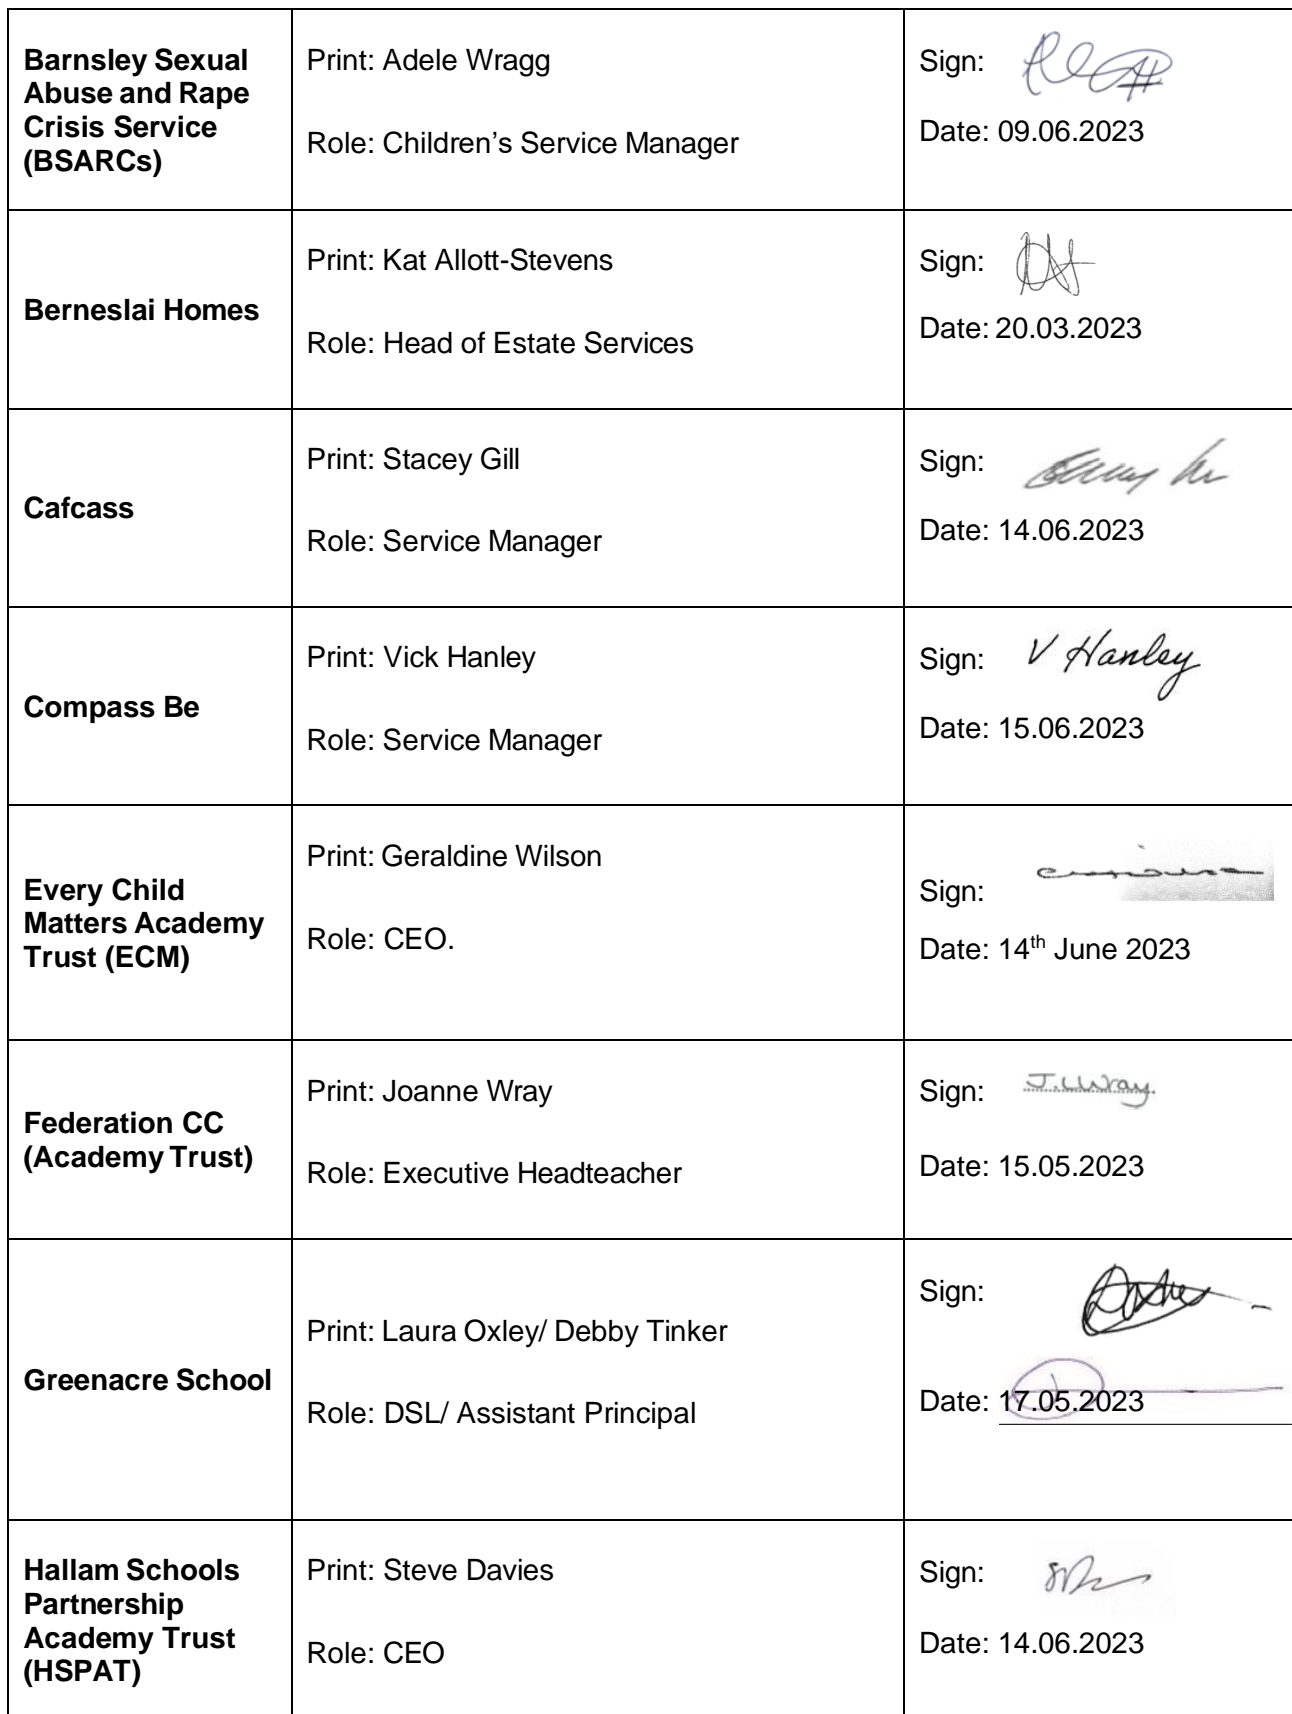 Barnsley Sexual
Abuse and Rape
Crisis Service
(BSARCs)
Print: Adele Wragg
Role: Children’s Service Manager
Sign:
Date: 09.06.2023
Berneslai Homes
Print: Kat Allott-Stevens
Role: Head of Estate Services
Sign:
Date: 20.03.2023
Cafcass
Print: Stacey Gill
Role: Service Manager
Sign:
Date: 14.06.2023
Compass Be
Print: Vick Hanley
Role: Service Manager
Sign: V Hanley
Date: 15.06.2023
Every Child
Matters Academy
Trust (ECM)
Print: Geraldine Wilson
Role: CEO.
Sign:
Date: 14th June 2023
Federation CC
(Academy Trust)
Print: Joanne Wray
Role: Executive Headteacher
Sign: J. Wray
Date: 15.05.2023
Greenacre School
Print: Laura Oxley/ Debby Tinker
Role: DSL/ Assistant Principal
Sign:
Date: 17.05.2023
Hallam Schools
Partnership
Academy Trust
(HSPAT)
Print: Steve Davies
Role: CEO
Sign:
Date: 14.06.2023